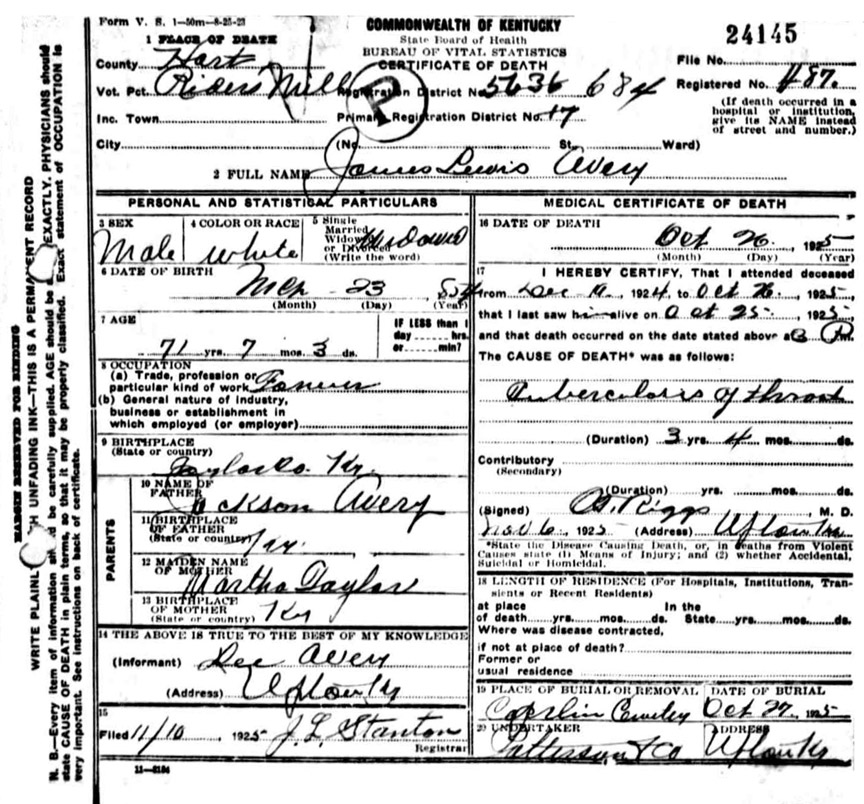 Form V. S. 1—50m—8-25-23
COMMONWEALTH OF KENTUCKY
State Board of Health
BUREAU OF VITAL STATISTICS
CERTIFICATE OF DEATH
24145
1 PLACE OF DEATH
County Hart
Vot. Pct. Riders Mill
Inc. Town
City (No. St. Ward)
P
Registration District No. 5636 684
Primary Registration District No. 17
File No.
Registered No. 487.
(If death occurred in a
hospital or institution,
give its NAME instead
of street and number.)
2 FULL NAME James Lewis Avery
PERSONAL AND STATISTICAL PARTICULARS
3 SEX
Male
4 COLOR OR RACE
white
5 Single
Married
Widowed
or Divorced
(Write the word)
Widowed
6 DATE OF BIRTH
Mch 23 854
(Month) (Day) (Year)
7 AGE
71 yrs. 7 mos. 3 ds.
IF LESS than 1
day hrs.
or min?
8 OCCUPATION
(a) Trade, profession or
particular kind of work Farmer
(b) General nature of industry,
business or establishment in
which employed (or employer)
9 BIRTHPLACE
(State or country)
Taylor Co. Ky.
PARENTS
10 NAME OF
FATHER Jackson Avery
11 BIRTHPLACE
OF FATHER
(State or country) Ky.
12 MAIDEN NAME
OF MOTHER
Martha Taylor
13 BIRTHPLACE
OF MOTHER
(State or country) Ky
14 THE ABOVE IS TRUE TO THE BEST OF MY KNOWLEDGE
(Informant) Dee Avery
(Address) Upton Ky
15
Filed 11/10 1925 J. L. Stanton
Registrar
11—3184
MEDICAL CERTIFICATE OF DEATH
16 DATE OF DEATH
Oct 26, 1925
(Month) (Day) (Year)
17 I HEREBY CERTIFY, That I attended deceased
from Dec , 1924, to Oct 26, 1925
that I last saw him alive on Oct 25, 1925,
and that death occurred on the date stated above a 3 P.m.
The CAUSE OF DEATH* was as follows:
Tuberculosis of throat
(Duration) 3 yrs. 4 mos. ds.
Contributory
(Secondary)
(Duration) yrs. mos. ds.
(Signed) Riggs, M. D.
Nov 6, 1925 (Address) Upton Ky
*State the Disease Causing Death, or, in deaths from Violent
Causes state (1) Means of Injury; and (2) whether Accidental,
Suicidal or Homicidal.
18 LENGTH OF RESIDENCE (For Hospitals, Institutions, Tran-
sients or Recent Residents)
at place In the
of death yrs. mos. ds. State yrs. mos. ds.
Where was disease contracted,
if not at place of death?
Former or
usual residence
19 PLACE OF BURIAL OR REMOVAL
DATE OF BURIAL
Oct 27. 1925
20 UNDERTAKER
Patterson & Co
ADDRESS
Upton Ky
MARGIN RESERVED FOR BINDING
WRITE PLAINL TH UNFADING INK—THIS IS A PERMA ENT RECORD
N. B.—Every item of information sh d be carefully supplied. AGE should be EXACTLY. PHYSICIANS should
state CAUSE OF DEATH in plain terms, so that it may be properly classified. Exact statement of OCCUPATION is
very important. See instructions on back of certificate.